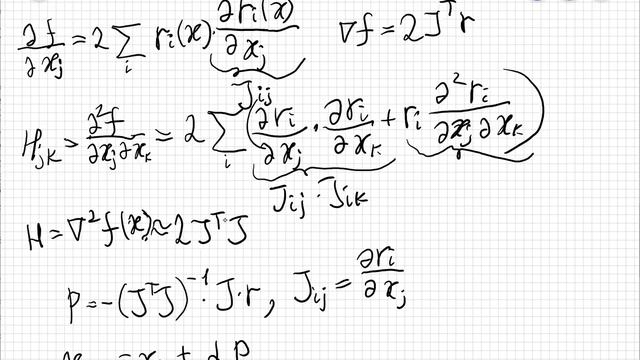 ∂f/∂xj = 2 ∑i ri(x) · ∂ri(x)/∂xj   ∇f = 2Jᵀr
Jij
Hjk = ∂²f/∂xj∂xk = 2 ∑i (∂ri/∂xj · ∂ri/∂xk + ri ∂²ri/∂xj∂xk)
Jij · Jik
H = ∇²f(x) ≈ 2JᵀJ
P = -(JᵀJ)⁻¹ · J · r, Jij = ∂ri/∂xj